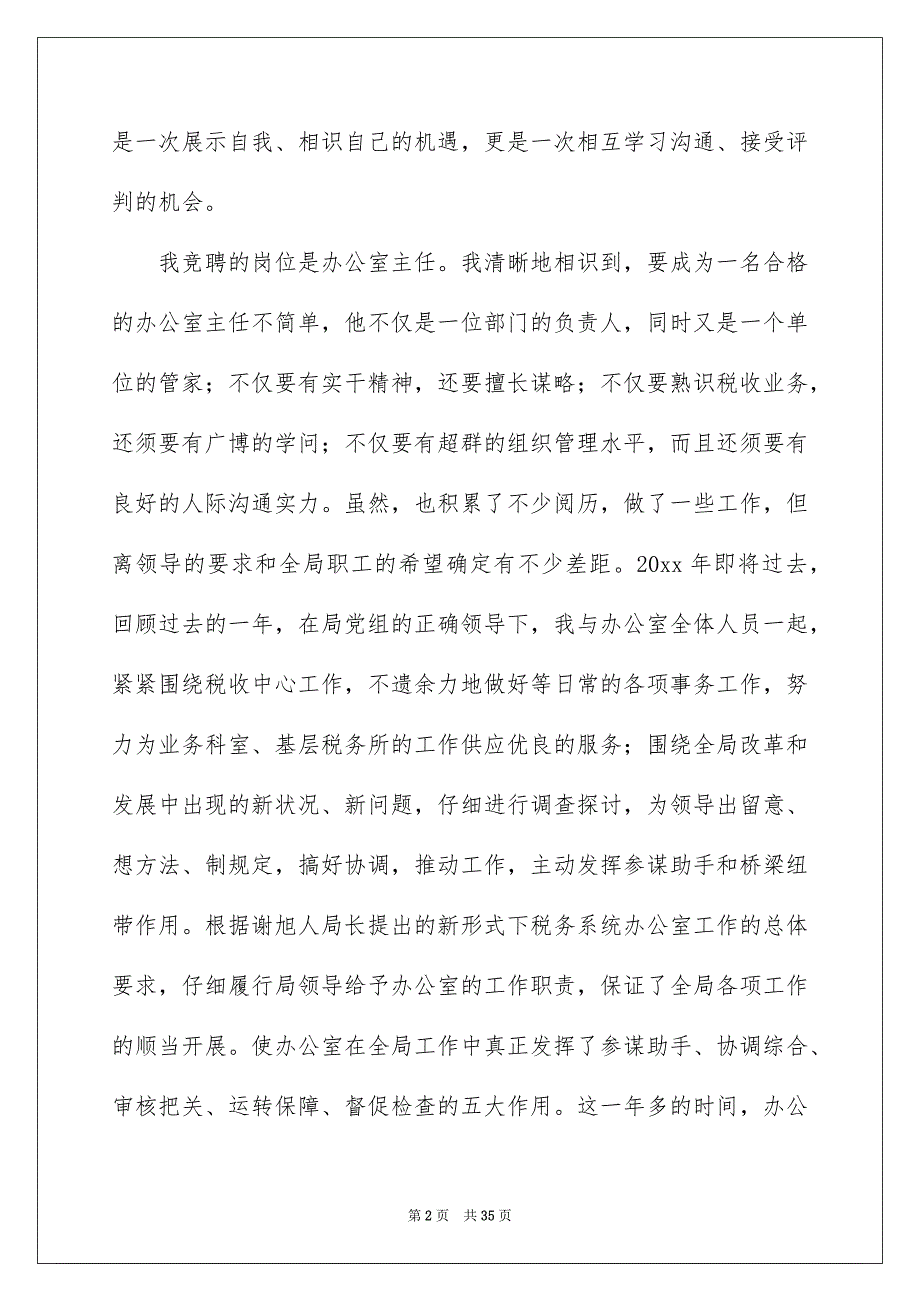 是一次展示自我、相识自己的机遇，更是一次相互学习沟通、接受评
判的机会。
我竞聘的岗位是办公室主任。我清晰地相识到，要成为一名合格
的办公室主任不简单，他不仅是一位部门的负责人，同时又是一个单
位的管家；不仅要有实干精神，还要擅长谋略；不仅要熟识税收业务，
还须要有广博的学问；不仅要有超群的组织管理水平，而且还须要有
良好的人际沟通实力。虽然，也积累了不少阅历，做了一些工作，但
离领导的要求和全局职工的希望确定有不少差距。20xx 年即将过去，
回顾过去的一年，在局党组的正确领导下，我与办公室全体人员一起，
紧紧围绕税收中心工作，不遗余力地做好等日常的各项事务工作，努
力为业务科室、基层税务所的工作供应优良的服务；围绕全局改革和
发展中出现的新状况、新问题，仔细进行调查探讨，为领导出留意、
想方法、制规定，搞好协调，推动工作，主动发挥参谋助手和桥梁纽
带作用。根据谢旭人局长提出的新形式下税务系统办公室工作的总体
要求，仔细履行局领导给予办公室的工作职责，保证了全局各项工作
的顺当开展。使办公室在全局工作中真正发挥了参谋助手、协调综合、
审核把关、运转保障、督促检查的五大作用。这一年多的时间，办公
第 2 页 共 35 页